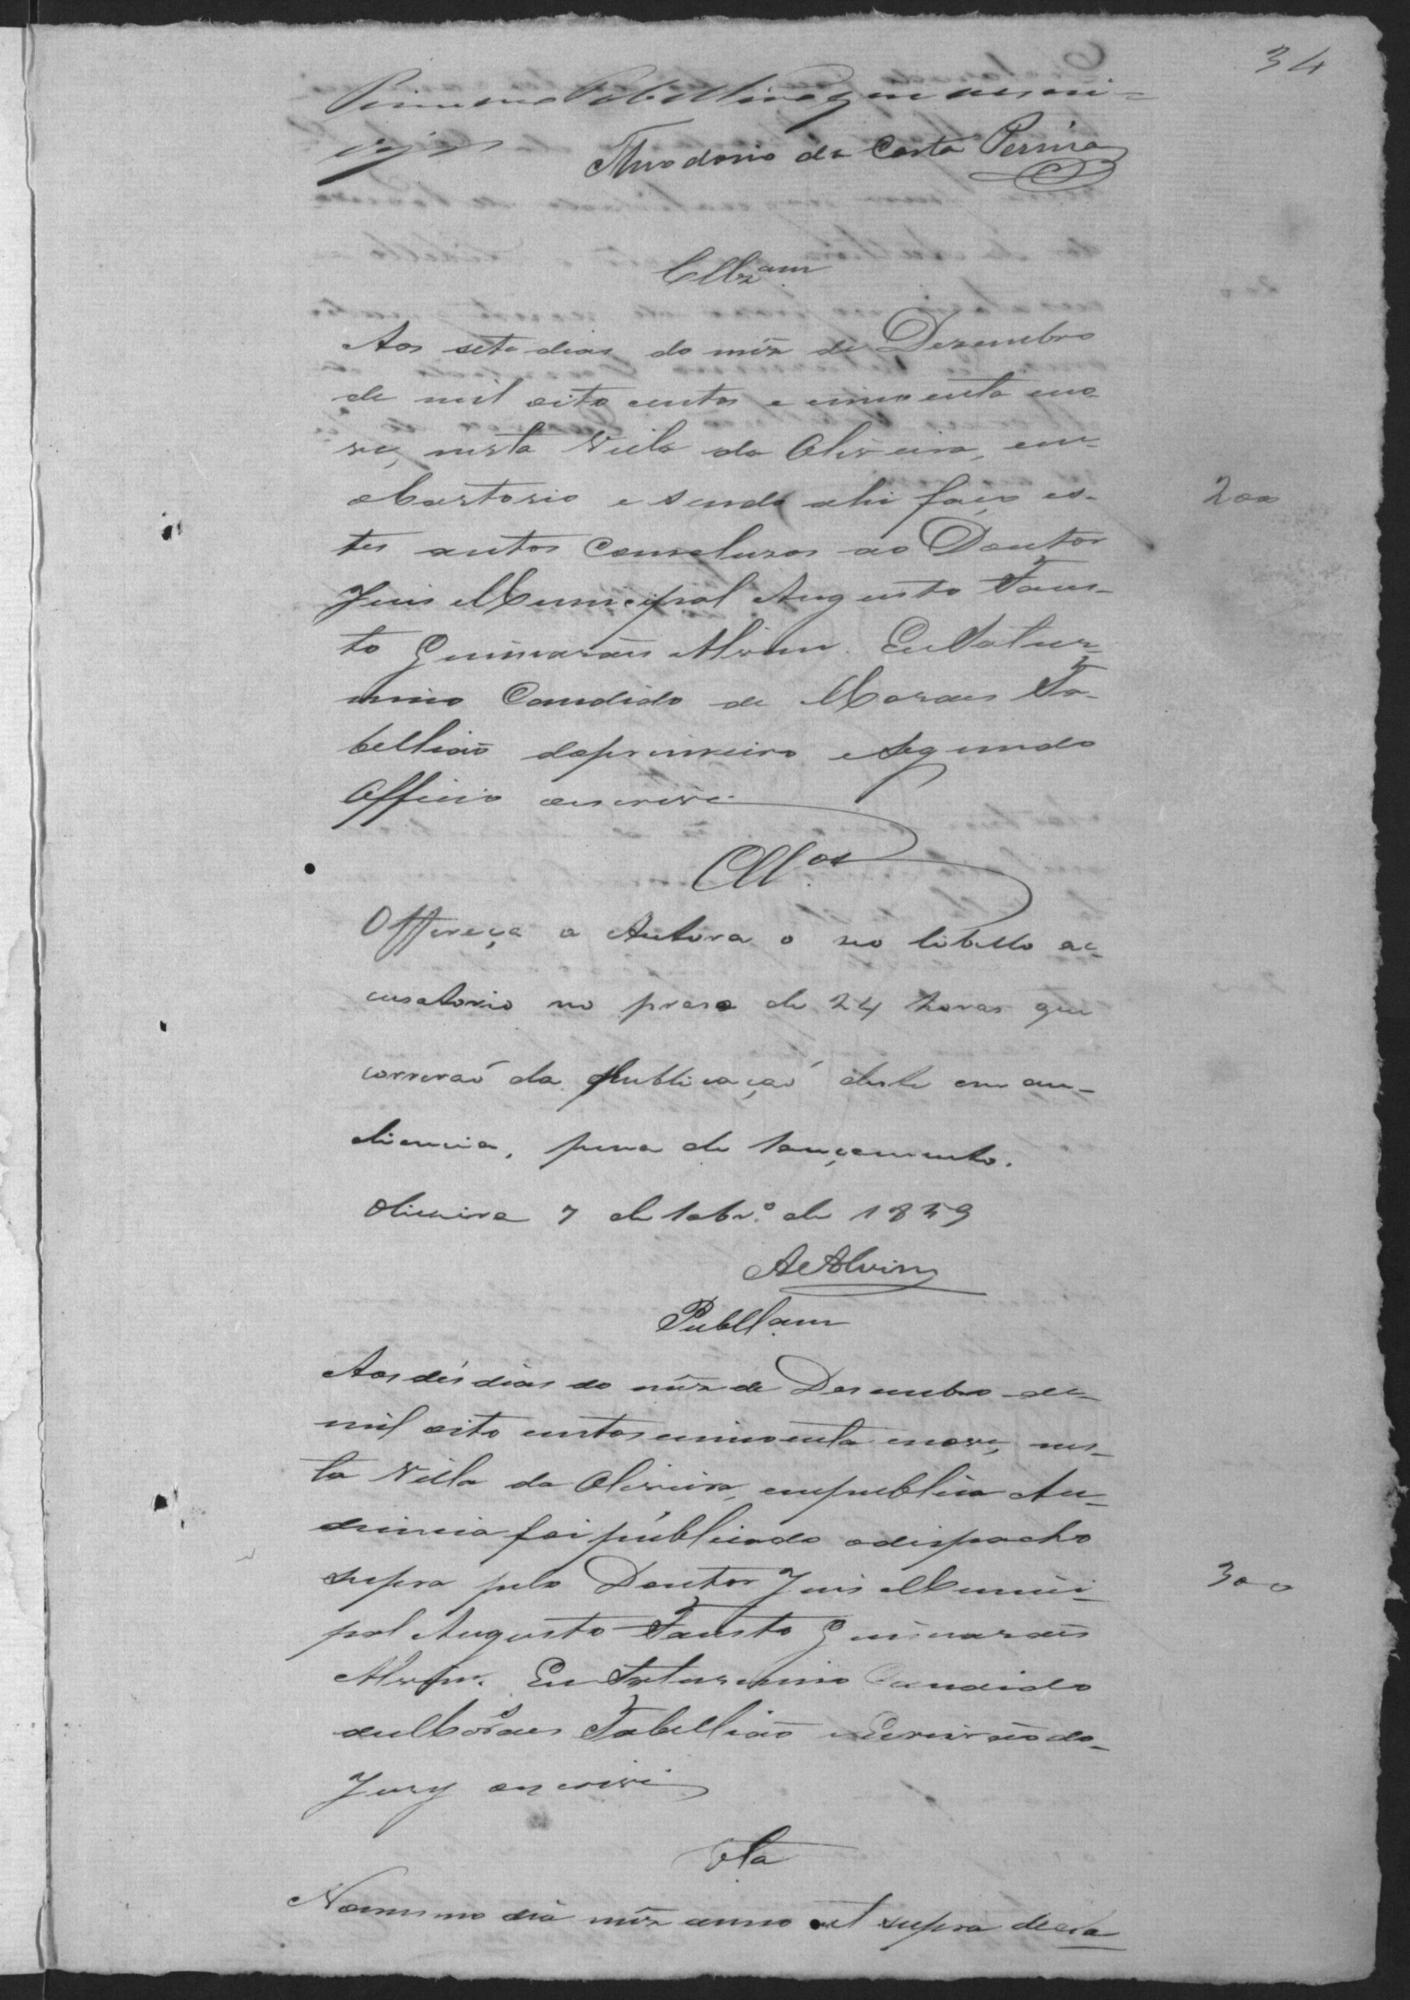 34
Primeiro Tabellião que escrevi
Theodorio da Costa Pereira
Cllz.am
Aos sete dias do mêz de Dezembro
de mil oito centos e cincoenta e no-
ve, nesta Villa da Oliveira, em
Cartorio e sendo ahi faço es-
200
tes autos Concluzos ao Doutor
Juis Municipal Augusto Faus-
to Guimarães Alvim. Eu Satur-
nino Candido de Moraes Ta-
bellião do primeiro e Segundo
Officio o escrevi
Cll.os
Offereça a Autora o seo libello ac-
cusatorio no praso de 24 horas que
correrao da publicaçao deste em au-
diencia, pena de lançamento.
Oliveira 7 de 10br.o de 1859
A Alvim
Publl.am
Aos dés dias do mêz de Desembro de
mil oito centos cincoenta e nove, nes-
ta Villa da Oliveira, em publica Au-
diencia foi publicado o dispacho
supra pelo Doutor Juis Munici-
300
pal Augusto Fausto Guimarães
Alvim. Eu Saturnino Candido
de Moraes Tabellião e Escrivão do
Jury o escrevi
Vta
No mesmo dia mêz anno et supra